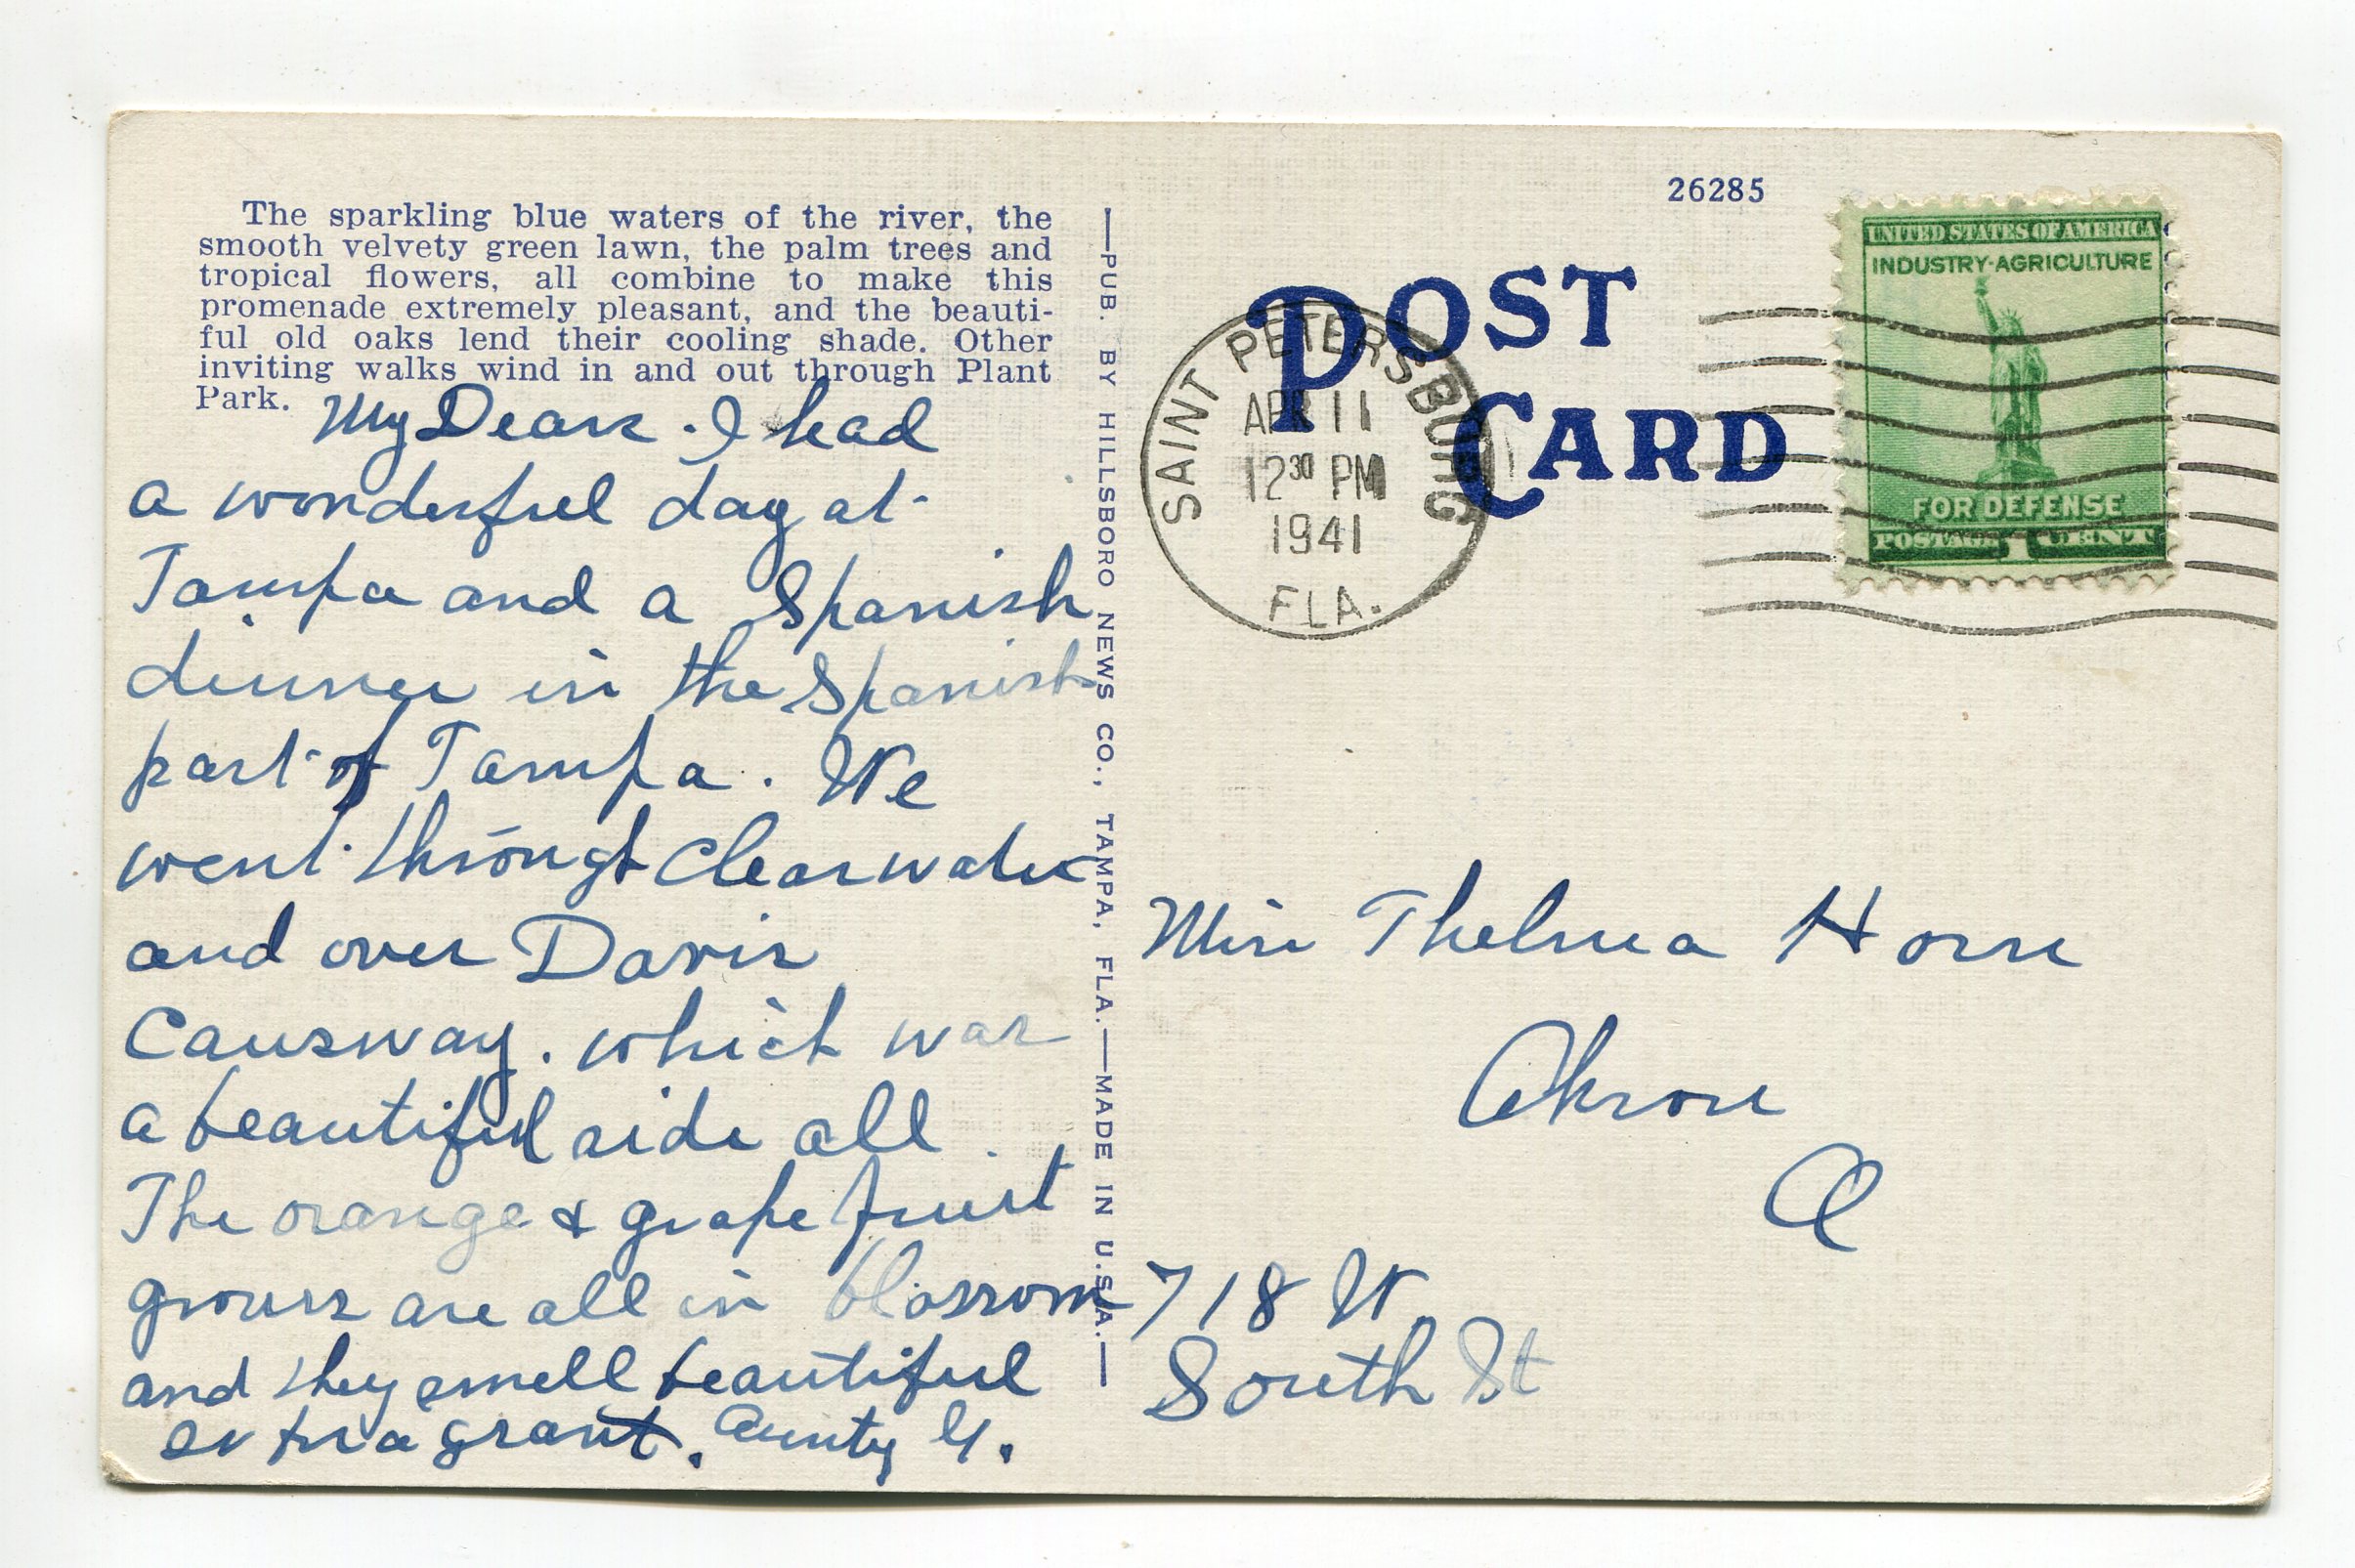 The sparkling blue waters of the river, the
smooth velvety green lawn, the palm trees and
tropical flowers, all combine to make this
promenade extremely pleasant, and the beauti-
ful old oaks lend their cooling shade. Other
inviting walks wind in and out through Plant
Park.
My Dear. I had
a wonderful day at
Tampa and a Spanish
dinner in the Spanish
part of Tampa. We
went through Clearwater
and over Davis
Causway. which was
a beautiful ride all.
The orange & grape fruit
groves are all in blossom
and they smell beautiful
so fragrant. Aunty
—PUB. BY HILLSBORO NEWS CO., TAMPA, FLA.—MADE IN U.S.A.—
26285
POST
CARD
SAINT PETERSBURG
APR 11
12 30 PM
1941
FLA.
UNITED STATES OF AMERICA
INDUSTRY·AGRICULTURE
FOR DEFENSE
POSTAGE 1 CENT
Miss Thelma Horn
Akron
O
718 W.
South St